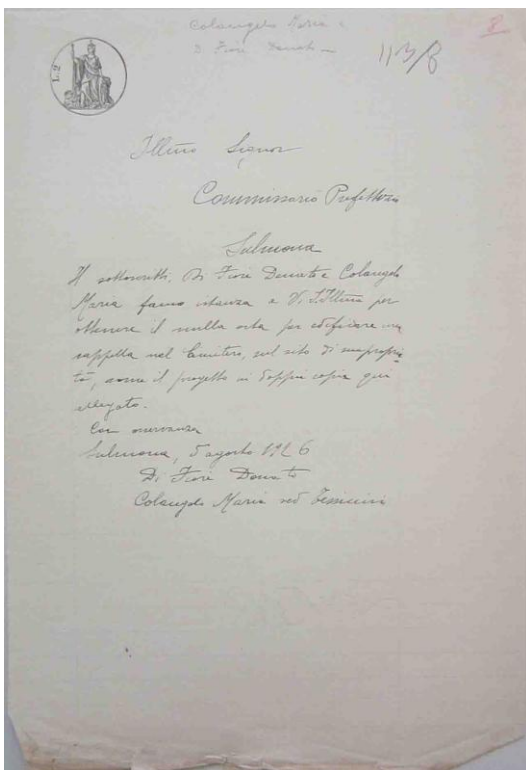 Colangelo Maria e
Di Fiore Donato –
113/8
8
L. 2
Ill.mo Signor
Commissario Prefettizio
Sulmona
Il sottoscritti, Di Fiore Donato e Colangelo
Maria fanno istanza a V. S. Ill.ma per
ottenere il nulla osta per edificare una
cappella nel Cimitero, sul sito di sua proprie
tà, come il progetto in doppia copia qui
allegato.
Con osservanza
Sulmona, 5 agosto 1926
Di Fiore Donato
Colangelo Maria ved